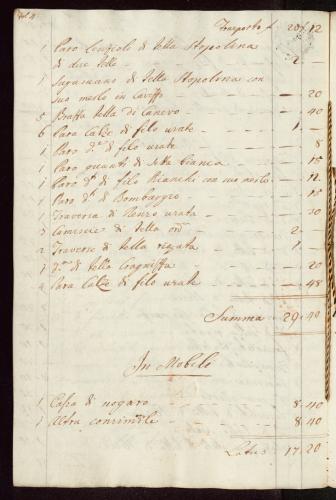 Trasporto f 20 12
1 Paro Linzioli di tella Stopolina
di due telle - 2 -
1 Sugamano di tella Stopolina con
suo merlo in - 20
5 Brazza tella di Canevo - 40
6 Para Calze di filo usate - 1 -
1 Paro d.º di filo usate - 8
1 Paro guanti di Seta bianca - 15
1 Paro d.ⁱ di filo Bianchi con suo merlo - 12
1 Paro d.ⁱ di Bombaggio - 15
1 Traversa di Renzo usata - 30
3 Camiscie di tella - 2 -
2 Traverse di tella rigata - 1 -
1 d.ª di tella - 20
4 Para Calze di filo usate - 48
Summa 29 40
In Mobile
1 Cassa di nogaro 8 40
1 Altra consimile 8 40
Latus 17 20